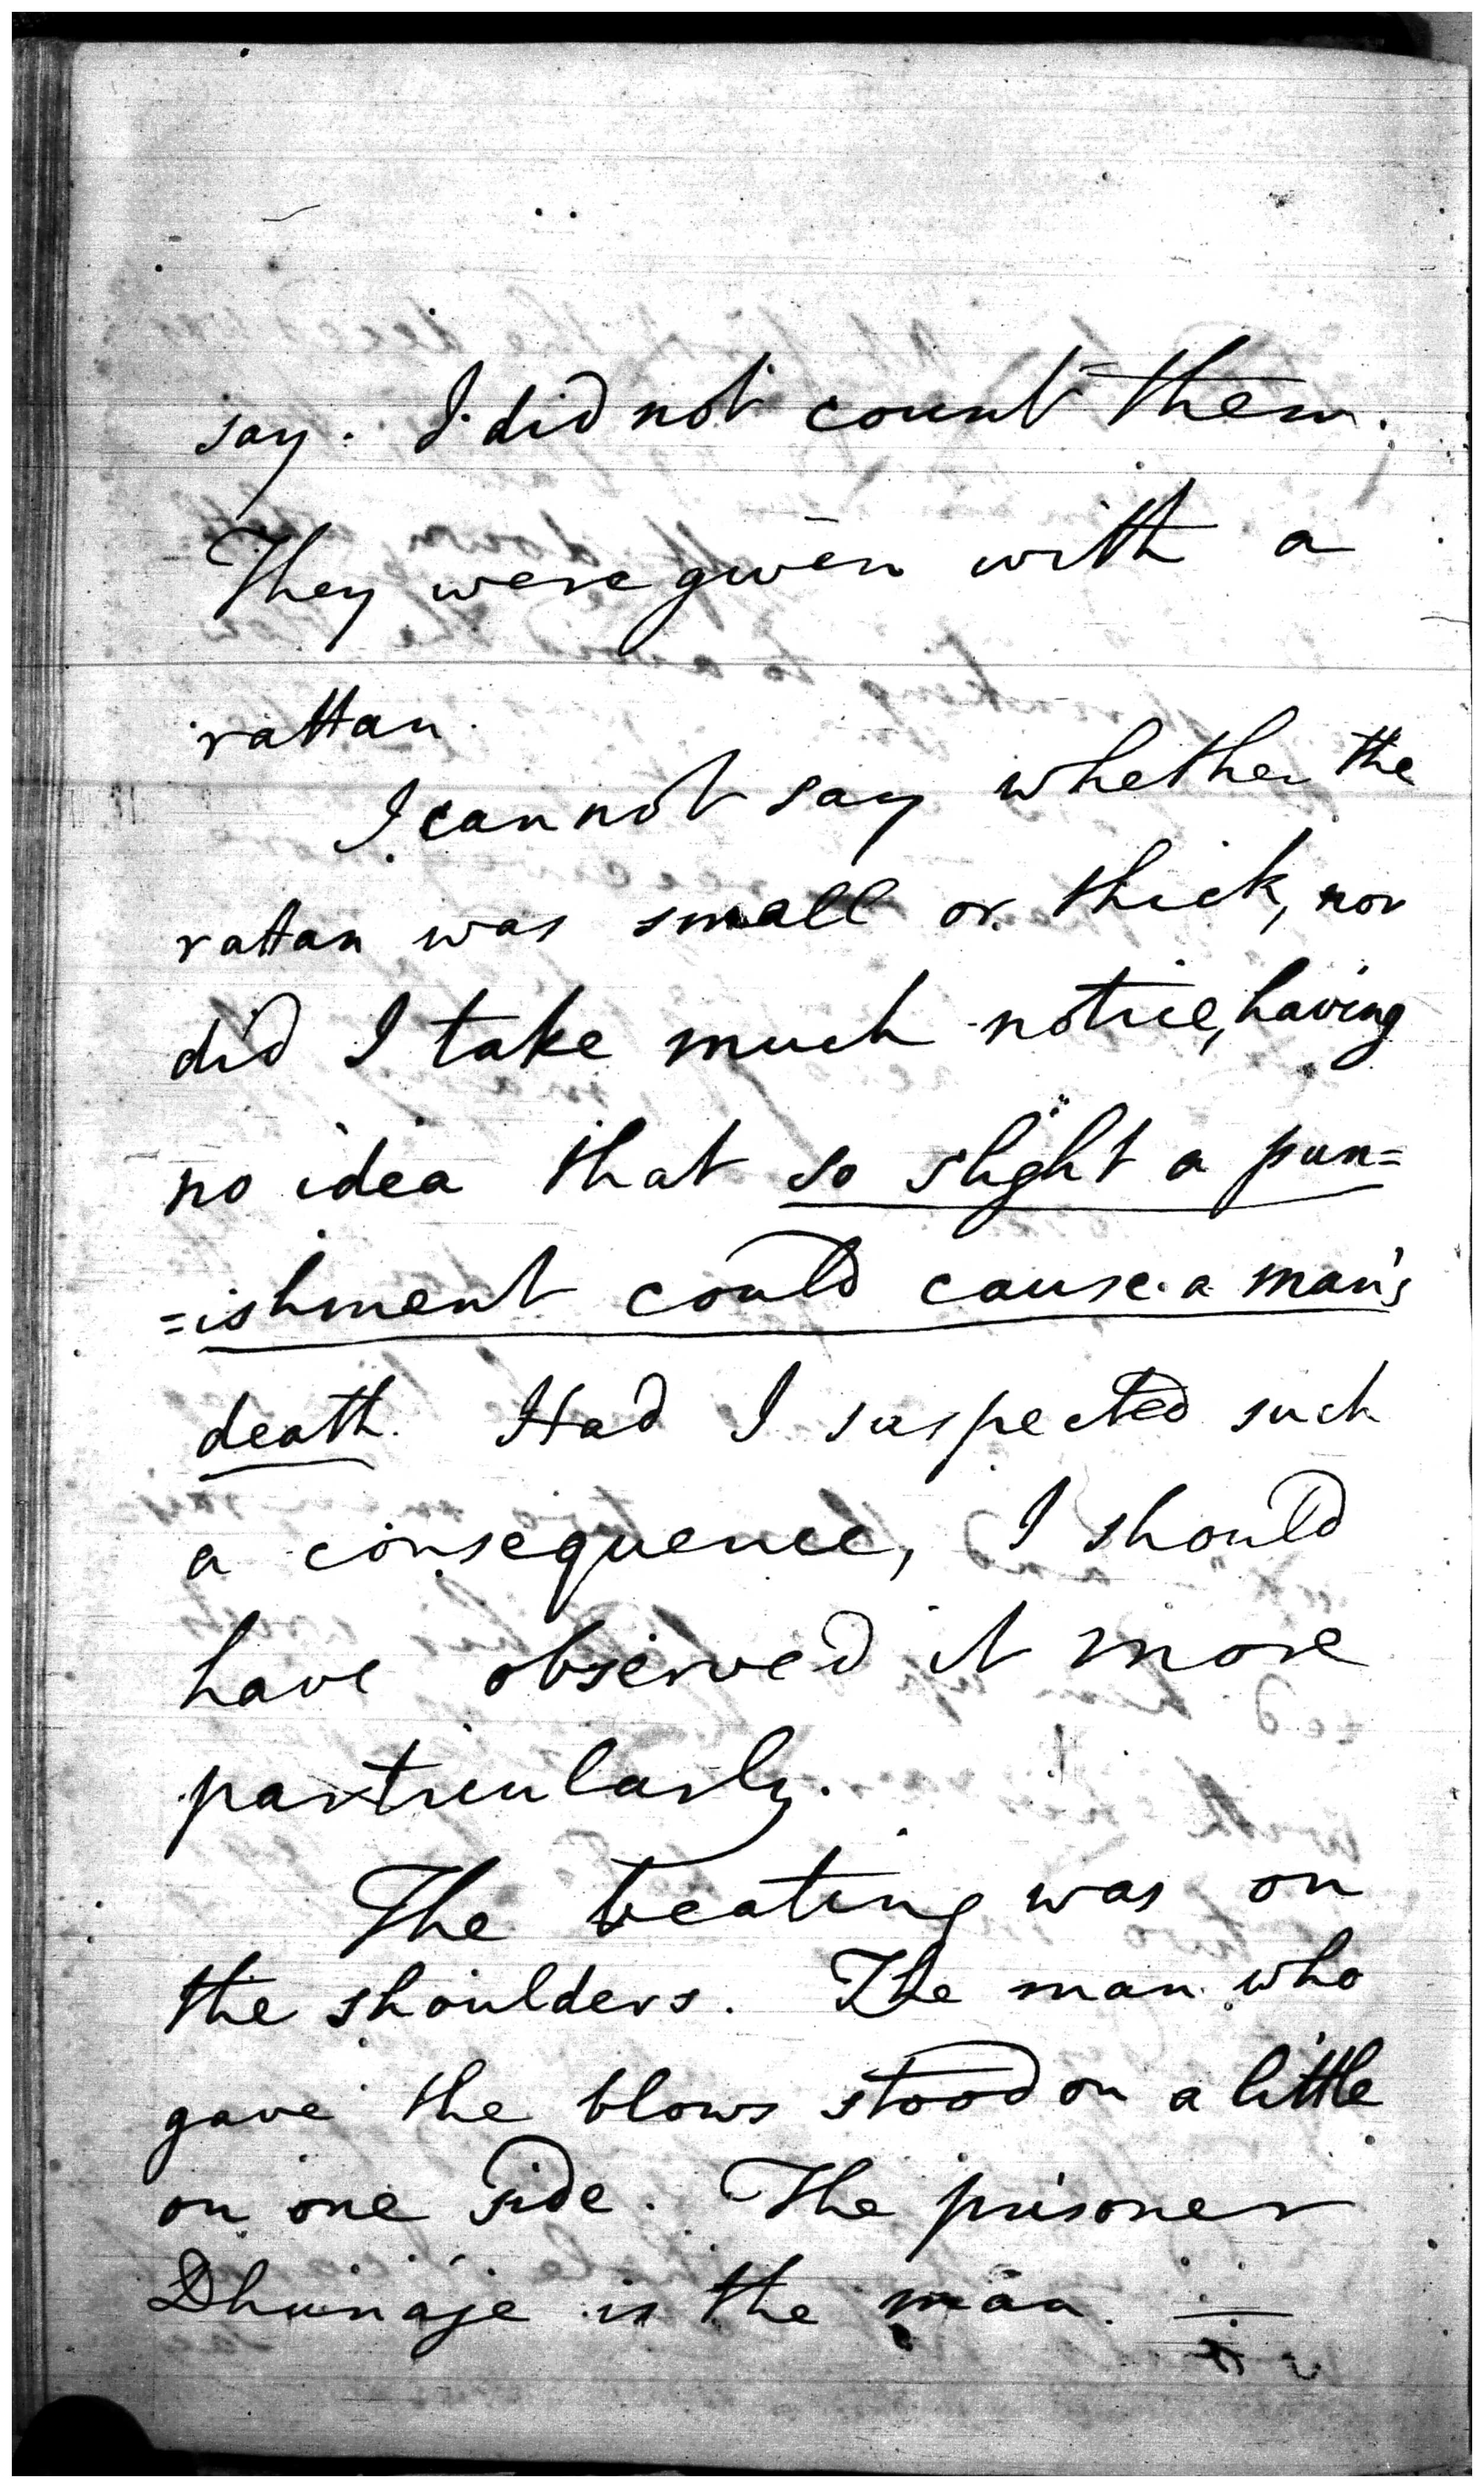 say. I did not count them.
They were given with a
rattan.
I cannot say whether the
rattan was small or thick, nor
did I take much notice, having
no idea that so slight a pun=
=ishment could cause a man's
death. Had I suspected such
a consequence, I should
have observed it more
particularly.
The beating was on
the shoulders. The man who
gave the blows stood on a little
on one side. The prisoner
is the man. —